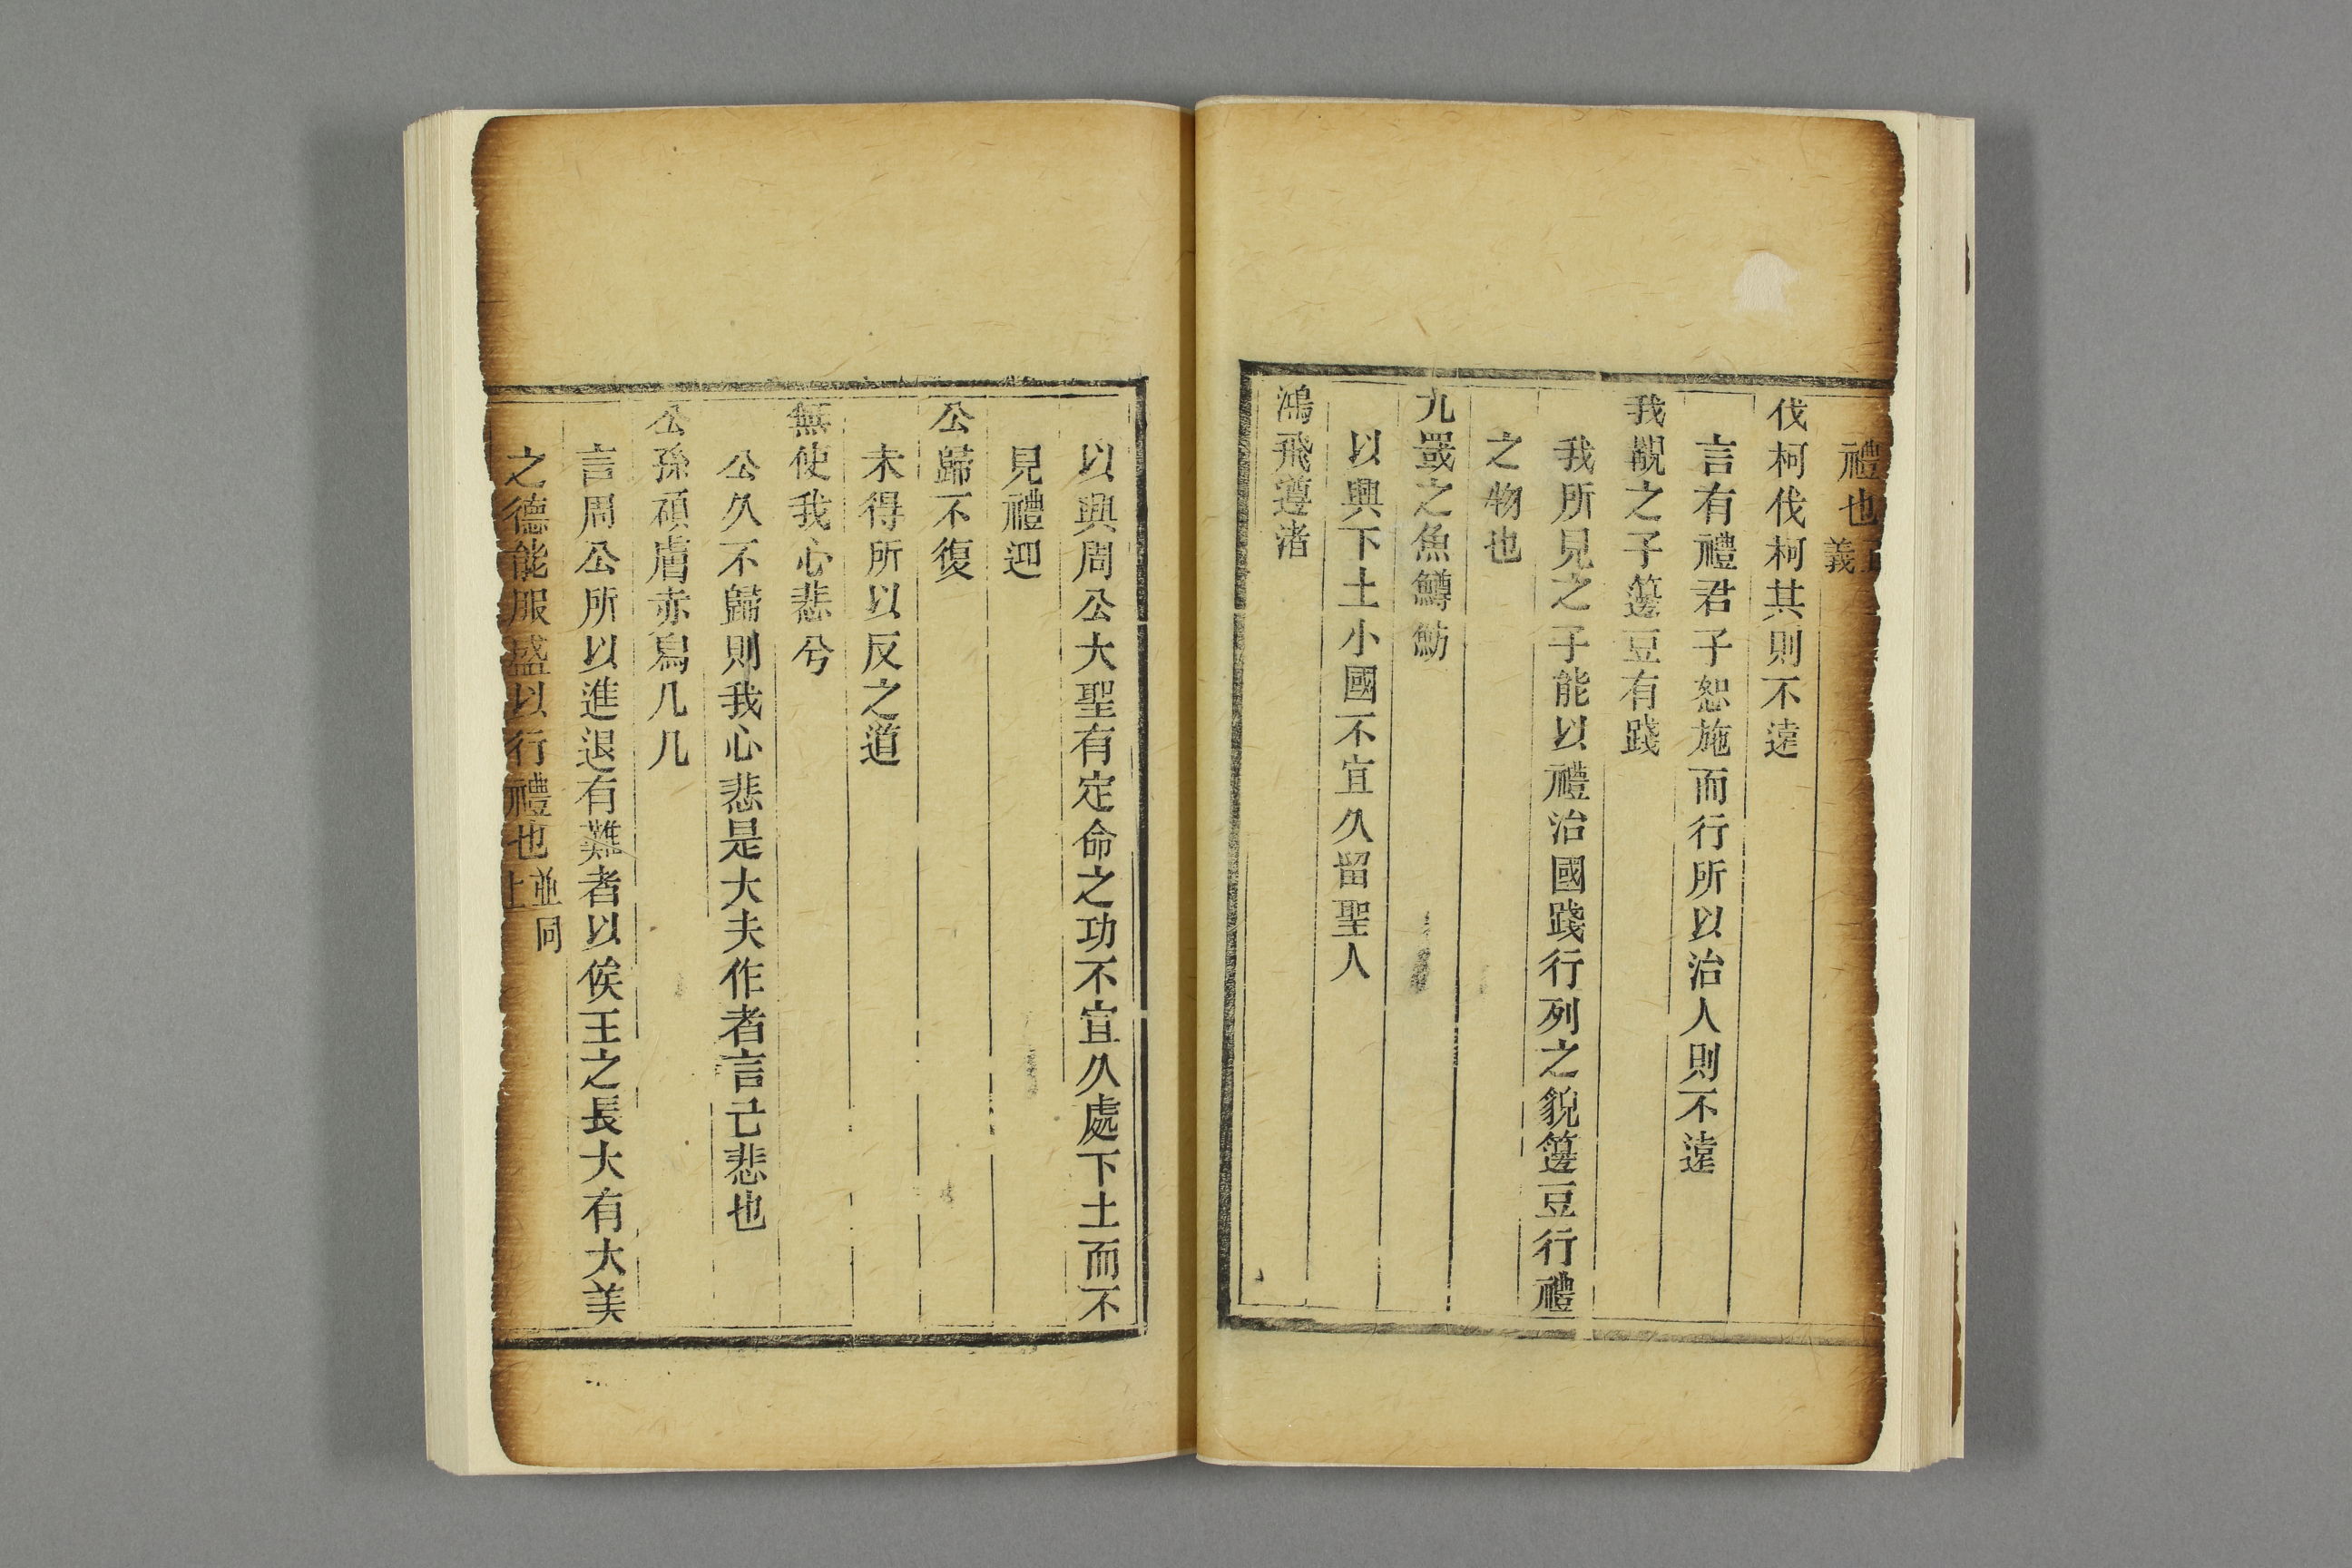 禮也義
伐柯伐柯其則不遠
言有禮君子恕施而行所以治人則不遠
我覯之子籩豆有踐
我所見之子能以禮治國踐行列之貌籩豆行禮
之物也
九罭之魚鱒魴
以興下土小國不宜久留聖人
鴻飛遵渚
以興周公大聖有定命之功不宜久處下土而不
見禮迎
公歸不復
未得所以反之道
無使我心悲兮
公久不歸則我心悲是大夫作者言己悲也
公孫碩膚赤舄几几
言周公所以進退有難者以俟王之長大有大美
之德能服盛以行禮也並同上